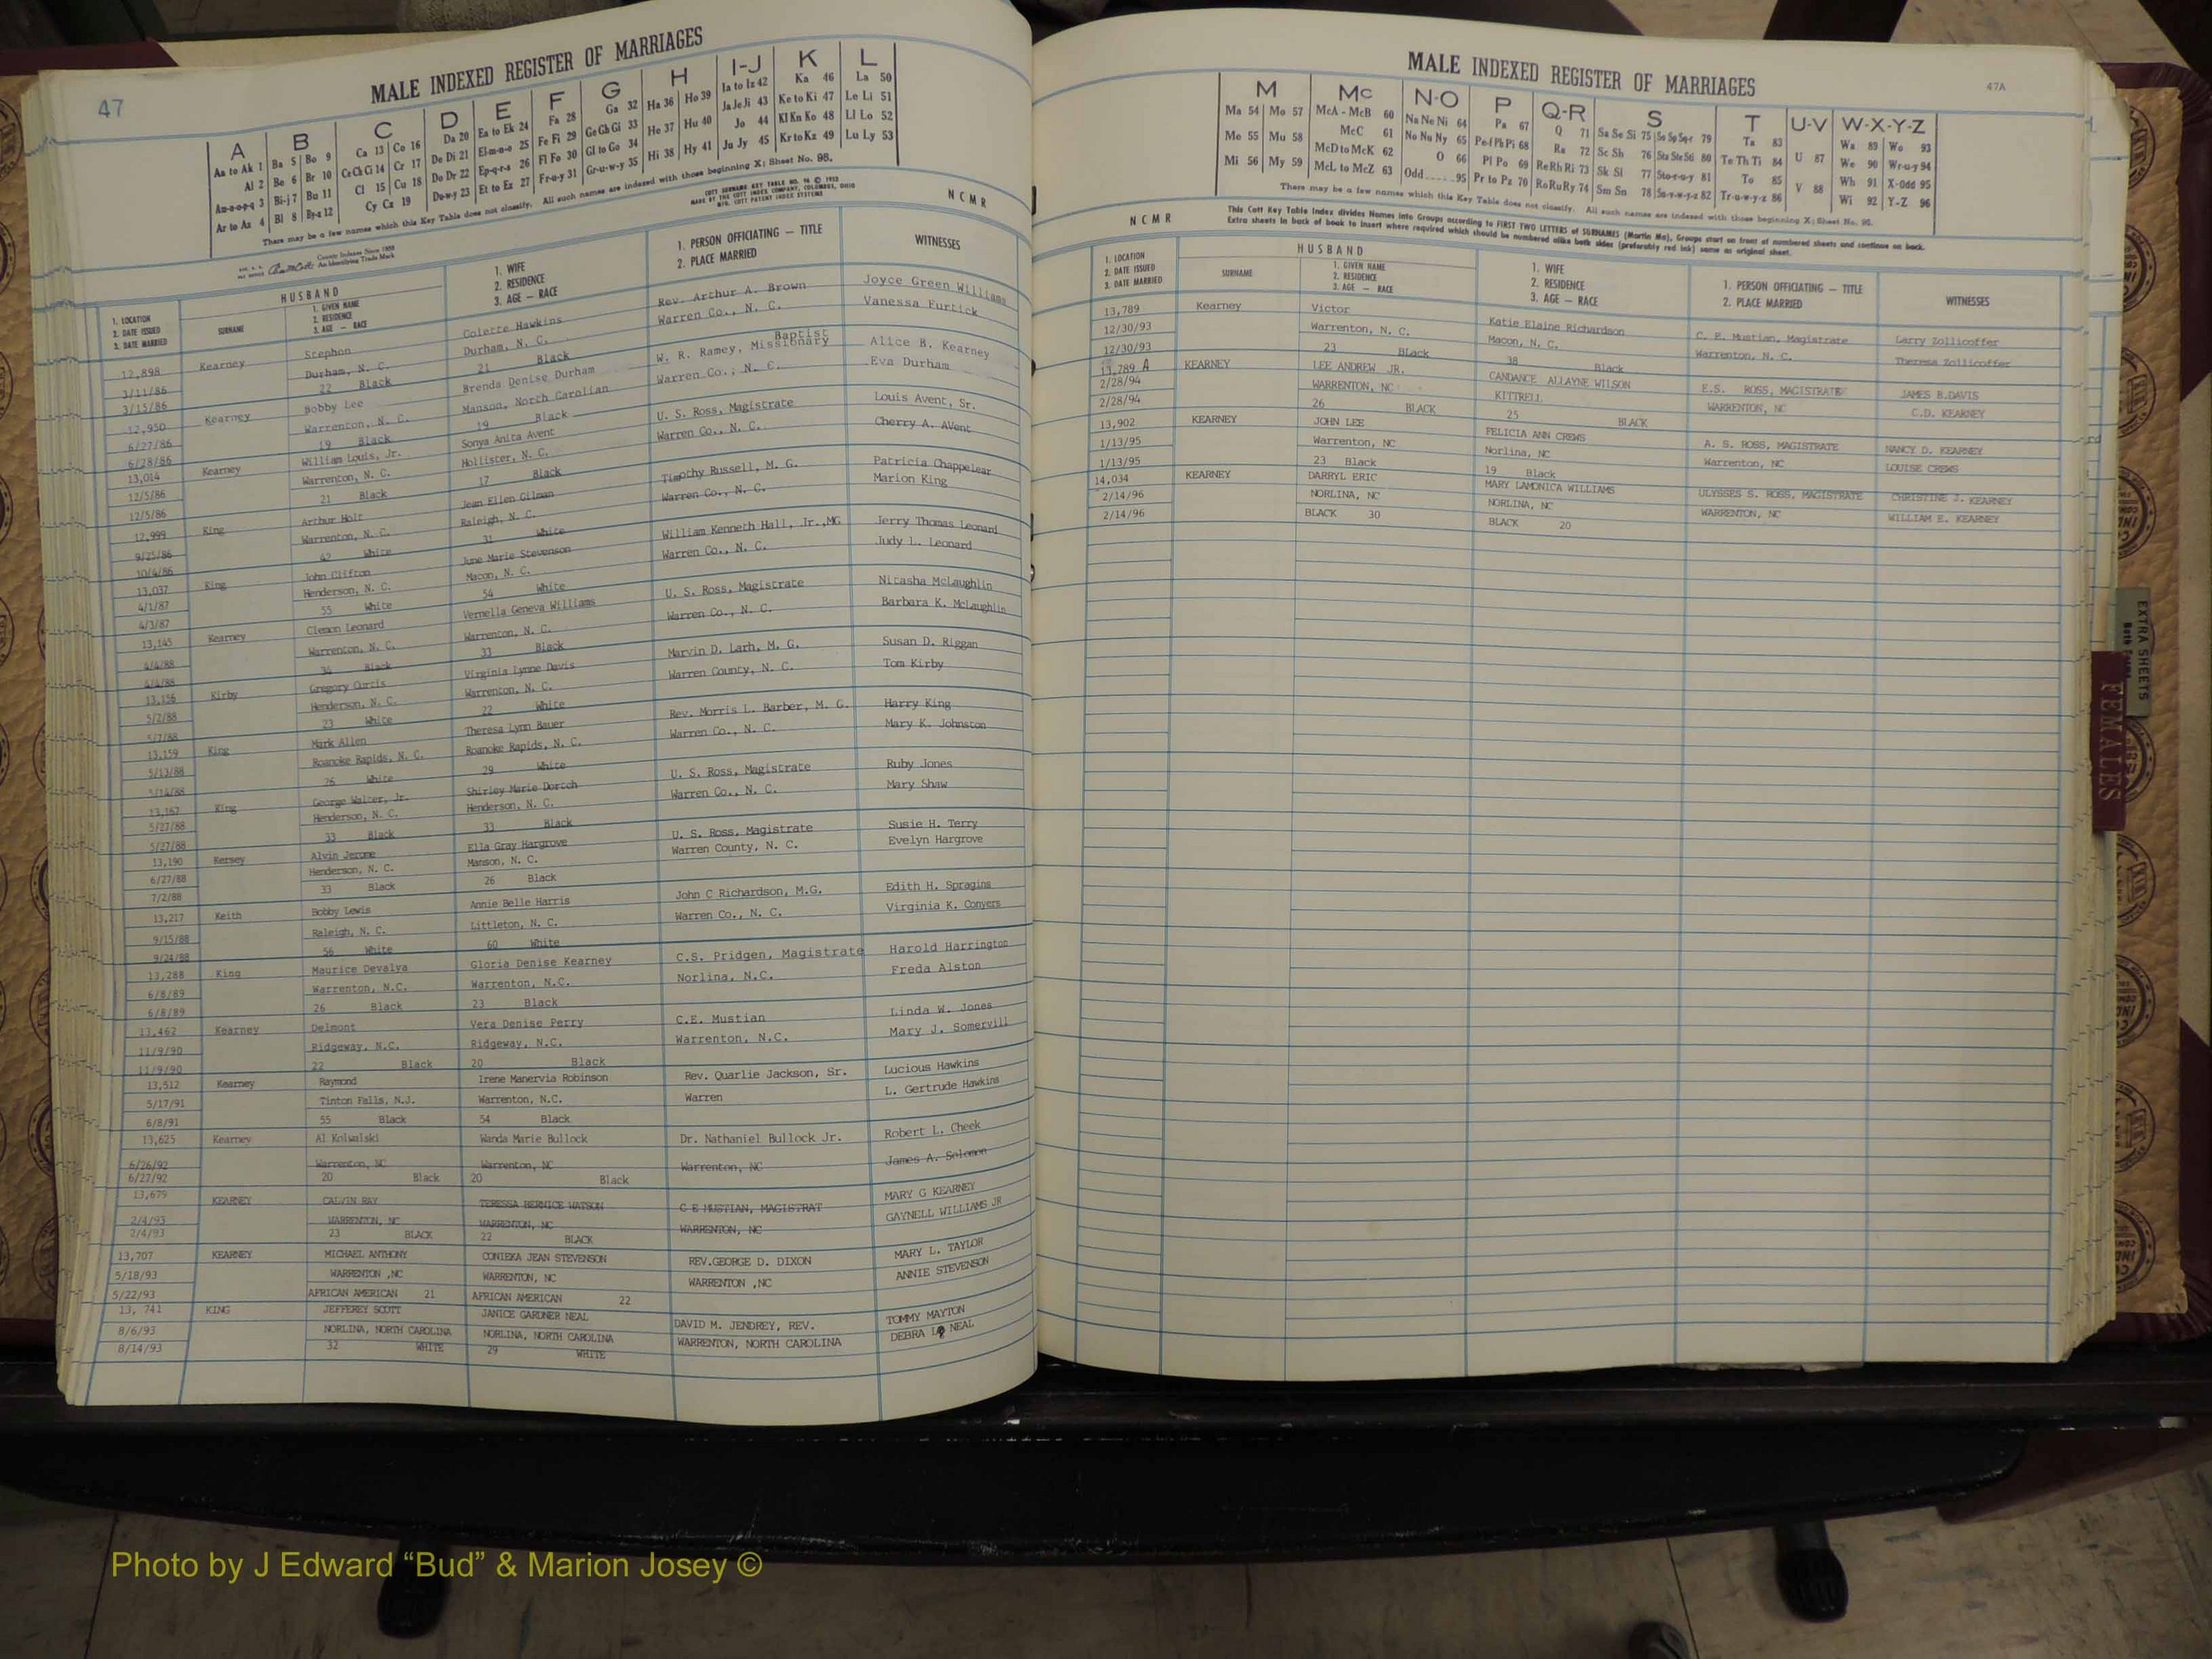 47
MALE INDEXED REGISTER OF MARRIAGES
A B C D E F G H I-J K L
Aa to Ak 1 Ba 5 Bo 9 Ca 13 Co 16 Da 20 Ea to Ek 24 Fa 28 Ga 32 Ha 36 Ho 39 Ia to Iz 42 Ka 46 La 50
Al 2 Be 6 Br 10 Ce Ch Ci 14 Cr 17 De Di 21 El-m-n-o 25 Fe Fi 29 Ge Gh Gi 33 He 37 Hu 40 Ja Je Ji 43 Ke to Ki 47 Le Li 51
Am-n-o-p-q 3 Bi-j 7 Bu 11 Cl 15 Cu 18 Do Dr 22 Ep-q-r-s 26 Fl Fo 30 Gl to Go 34 Hi 38 Hy 41 Jo 44 Kl Kn Ko 48 Ll Lo 52
Ar to Az 4 Bl 8 By-z 12 Cy Cz 19 Du-w-y 23 Et to Ez 27 Fr-u-y 31 Gr-u-w-y 35 Ju Jy 45 Kr to Kz 49 Lu Ly 53
There may be a few names which this Key Table does not classify. All such names are indexed with those beginning X; Sheet No. 98.
COTT SURNAME KEY TABLE NO. 96 © 1952
MADE BY THE COTT INDEX COMPANY, COLUMBUS, OHIO
MFG. COTT PATENT INDEX SYSTEMS
County Indexes Since 1888
An Identifying Trade Mark
N C M R
1. LOCATION
2. DATE ISSUED
3. DATE MARRIED
HUSBAND
SURNAME
1. GIVEN NAME
2. RESIDENCE
3. AGE — RACE
1. WIFE
2. RESIDENCE
3. AGE — RACE
1. PERSON OFFICIATING — TITLE
2. PLACE MARRIED
WITNESSES
12,898 Kearney Stephon Colette Hawkins Rev. Arthur A. Brown Joyce Green Williams
3/11/86 Durham, N. C. Durham, N. C. Warren Co., N. C. Vanessa Furtick
3/15/86 22 Black 21 Black
12,950 Kearney Bobby Lee Brenda Denise Durham W. R. Ramey, Missionary Baptist Alice B. Kearney
6/27/86 Warrenton, N. C. Manson, North Carolian Warren Co., N. C. Eva Durham
6/28/86 19 Black 19 Black
13,014 Kearney William Louis, Jr. Sonya Anita Avent U. S. Ross, Magistrate Louis Avent, Sr.
12/5/86 Warrenton, N. C. Hollister, N. C. Warren Co., N. C. Cherry A. AVent
12/5/86 21 Black 17 Black
12,999 King Arthur Holt Jean Ellen Gilman Timothy Russell, M. G. Patricia Chappelear
9/25/86 Warrenton, N. C. Raleigh, N. C. Warren Co., N. C. Marion King
10/4/86 42 White 31 White
13,037 King John Clifton June Marie Stevenson William Kenneth Hall, Jr.,MG Jerry Thomas Leonard
4/1/87 Henderson, N. C. Macon, N. C. Warren Co., N. C. Judy L. Leonard
4/3/87 55 White 54 White
13,145 Kearney Clemon Leonard Vernella Geneva Williams U. S. Ross, Magistrate Nitasha McLaughlin
4/4/88 Warrenton, N. C. Warrenton, N. C. Warren Co., N. C. Barbara K. McLaughlin
4/4/88 34 Black 33 Black
13,156 Kirby Gregory Curtis Virginia Lynne Davis Marvin D. Larh, M. G. Susan D. Riggan
5/2/88 Henderson, N. C. Warrenton, N. C. Warren County, N. C. Tom Kirby
5/7/88 23 White 22 White
13,159 King Mark Allen Theresa Lynn Bauer Rev. Morris L. Barber, M. G. Harry King
5/13/88 Roanoke Rapids, N. C. Roanoke Rapids, N. C. Warren Co., N. C. Mary K. Johnston
5/14/88 26 White 29 White
13,167 King George Walter, Jr. Shirley Marie Dortch U. S. Ross, Magistrate Ruby Jones
5/27/88 Henderson, N. C. Henderson, N. C. Warren Co., N. C. Mary Shaw
5/27/88 33 Black 33 Black
13,190 Kersey Alvin Jerome Ella Gray Hargrove U. S. Ross, Magistrate Susie H. Terry
6/27/88 Henderson, N. C. Manson, N. C. Warren County, N. C. Evelyn Hargrove
7/2/88 33 Black 26 Black
13,217 Keith Bobby Lewis Annie Belle Harris John C Richardson, M.G. Edith H. Spragins
9/15/88 Raleigh, N. C. Littleton, N. C. Warren Co., N. C. Virginia K. Conyers
9/24/88 56 White 60 White
13,288 King Maurice Devalya Gloria Denise Kearney C.S. Pridgen, Magistrate Harold Harrington
6/8/89 Warrenton, N.C. Warrenton, N.C. Norlina, N.C. Freda Alston
6/8/89 26 Black 23 Black
13,462 Kearney Delmont Vera Denise Perry C.E. Mustian Linda W. Jones
11/9/90 Ridgeway, N.C. Ridgeway, N.C. Warrenton, N.C. Mary J. Somervill
11/9/90 22 Black 20 Black
13,512 Kearney Raymond Irene Manervia Robinson Rev. Quarlie Jackson, Sr. Lucious Hawkins
5/17/91 Tinton Falls, N.J. Warrenton, N.C. Warren L. Gertrude Hawkins
6/8/91 55 Black 54 Black
13,625 Kearney Al Kolwalski Wanda Marie Bullock Dr. Nathaniel Bullock Jr. Robert L. Cheek
6/26/92 Warrenton, NC Warrenton, NC Warrenton, NC James A. Solomon
6/27/92 20 Black 20 Black
13,679 KEARNEY CALVIN RAY TERESSA BERNICE WATSON C E MUSTIAN, MAGISTRAT MARY G KEARNEY
2/4/93 WARRENTON, NC WARRENTON, NC WARRENTON, NC GAYNELL WILLIAMS JR
2/4/93 23 BLACK 22 BLACK
13,707 KEARNEY MICHAEL ANTHONY CONIEKA JEAN STEVENSON REV.GEORGE D. DIXON MARY L. TAYLOR
5/18/93 WARRENTON ,NC WARRENTON, NC WARRENTON ,NC ANNIE STEVENSON
5/22/93 AFRICAN AMERICAN 21 AFRICAN AMERICAN 22
13, 741 KING JEFFEREY SCOTT JANICE GARDNER NEAL DAVID M. JENDREY, REV. TOMMY MAYTON
8/6/93 NORLINA, NORTH CAROLINA NORLINA, NORTH CAROLINA WARRENTON, NORTH CAROLINA DEBRA NEAL
8/14/93 32 WHITE 29 WHITE
MALE INDEXED REGISTER OF MARRIAGES
47A
M Mc N-O P Q-R S T U-V W-X-Y-Z
Ma 54 Mo 57 McA - McB 60 Na Ne Ni 64 Pa 67 Q 71 Sa Se Si 75 So Sp Sq-r 79 Ta 83 U 87 Wa 89 Wo 93
Me 55 Mu 58 McC 61 No Nu Ny 65 Pe-f Ph Pi 68 Ra 72 Sc Sh 76 Sta Ste Sti 80 Te Th Ti 84 V 88 We 90 Wr-u-y 94
Mi 56 My 59 McD to McK 62 O 66 Pl Po 69 Re Rh Ri 73 Sk Sl 77 Sto-r-u-y 81 To 85 Wh 91 X-Odd 95
McL to McZ 63 Odd 95 Pr to Pz 70 Ro Ru Ry 74 Sm Sn 78 Su-v-w-y-z 82 Tr-u-w-y-z 86 Wi 92 Y-Z 96
There may be a few names which this Key Table does not classify. All such names are indexed with those beginning X; Sheet No. 98.
This Cott Key Table Index divides Names into Groups according to FIRST TWO LETTERS of SURNAMES (Martin Ma), Groups start on front of numbered sheets and continue on back.
Extra sheets in back of book to insert where required which should be numbered alike both sides (preferably red ink) same as original sheet.
N C M R
1. LOCATION
2. DATE ISSUED
3. DATE MARRIED
HUSBAND
SURNAME
1. GIVEN NAME
2. RESIDENCE
3. AGE — RACE
1. WIFE
2. RESIDENCE
3. AGE — RACE
1. PERSON OFFICIATING — TITLE
2. PLACE MARRIED
WITNESSES
13,789 Kearney Victor Katie Elaine Richardson C. E. Mustian, Magistrate Larry Zollicoffer
12/30/93 Warrenton, N. C. Macon, N. C. Warrenton, N. C. Theresa Zollicoffer
12/30/93 23 BLack 38 Black
13,789 A KEARNEY LEE ANDREW JR. CANDANCE ALLAYNE WILSON E.S. ROSS, MAGISTRATE JAMES B.DAVIS
2/28/94 WARRENTON, NC KITTRELL WARRENTON, NC C.D. KEARNEY
2/28/94 26 BLACK 25 BLACK
13,902 KEARNEY JOHN LEE FELICIA ANN CREWS A. S. ROSS, MAGISTRATE NANCY D. KEARNEY
1/13/95 Warrenton, NC Norlina, NC Warrenton, NC LOUISE CREWS
1/13/95 23 Black 19 Black
14,034 KEARNEY DARRYL ERIC MARY LAMONICA WILLIAMS ULYSSES S. ROSS, MAGISTRATE CHRISTINE J. KEARNEY
2/14/96 NORLINA, NC NORLINA, NC WARRENTON, NC WILLIAM E. KEARNEY
2/14/96 BLACK 30 BLACK 20
EXTRA SHEETS
FEMALES
Photo by J Edward “Bud” & Marion Josey ©